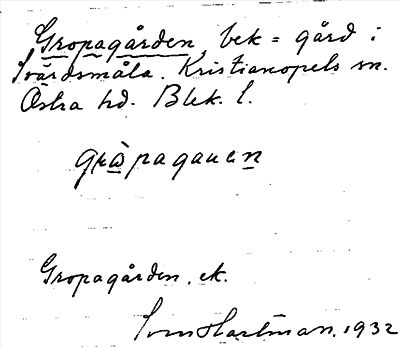 Gropagården, bek = gård i
Svärdsmåla. Kristianopels sn.
Östra hd. Blek. l.
gràpagauen
Gropagården. ek.
Sven Hartman. 1932